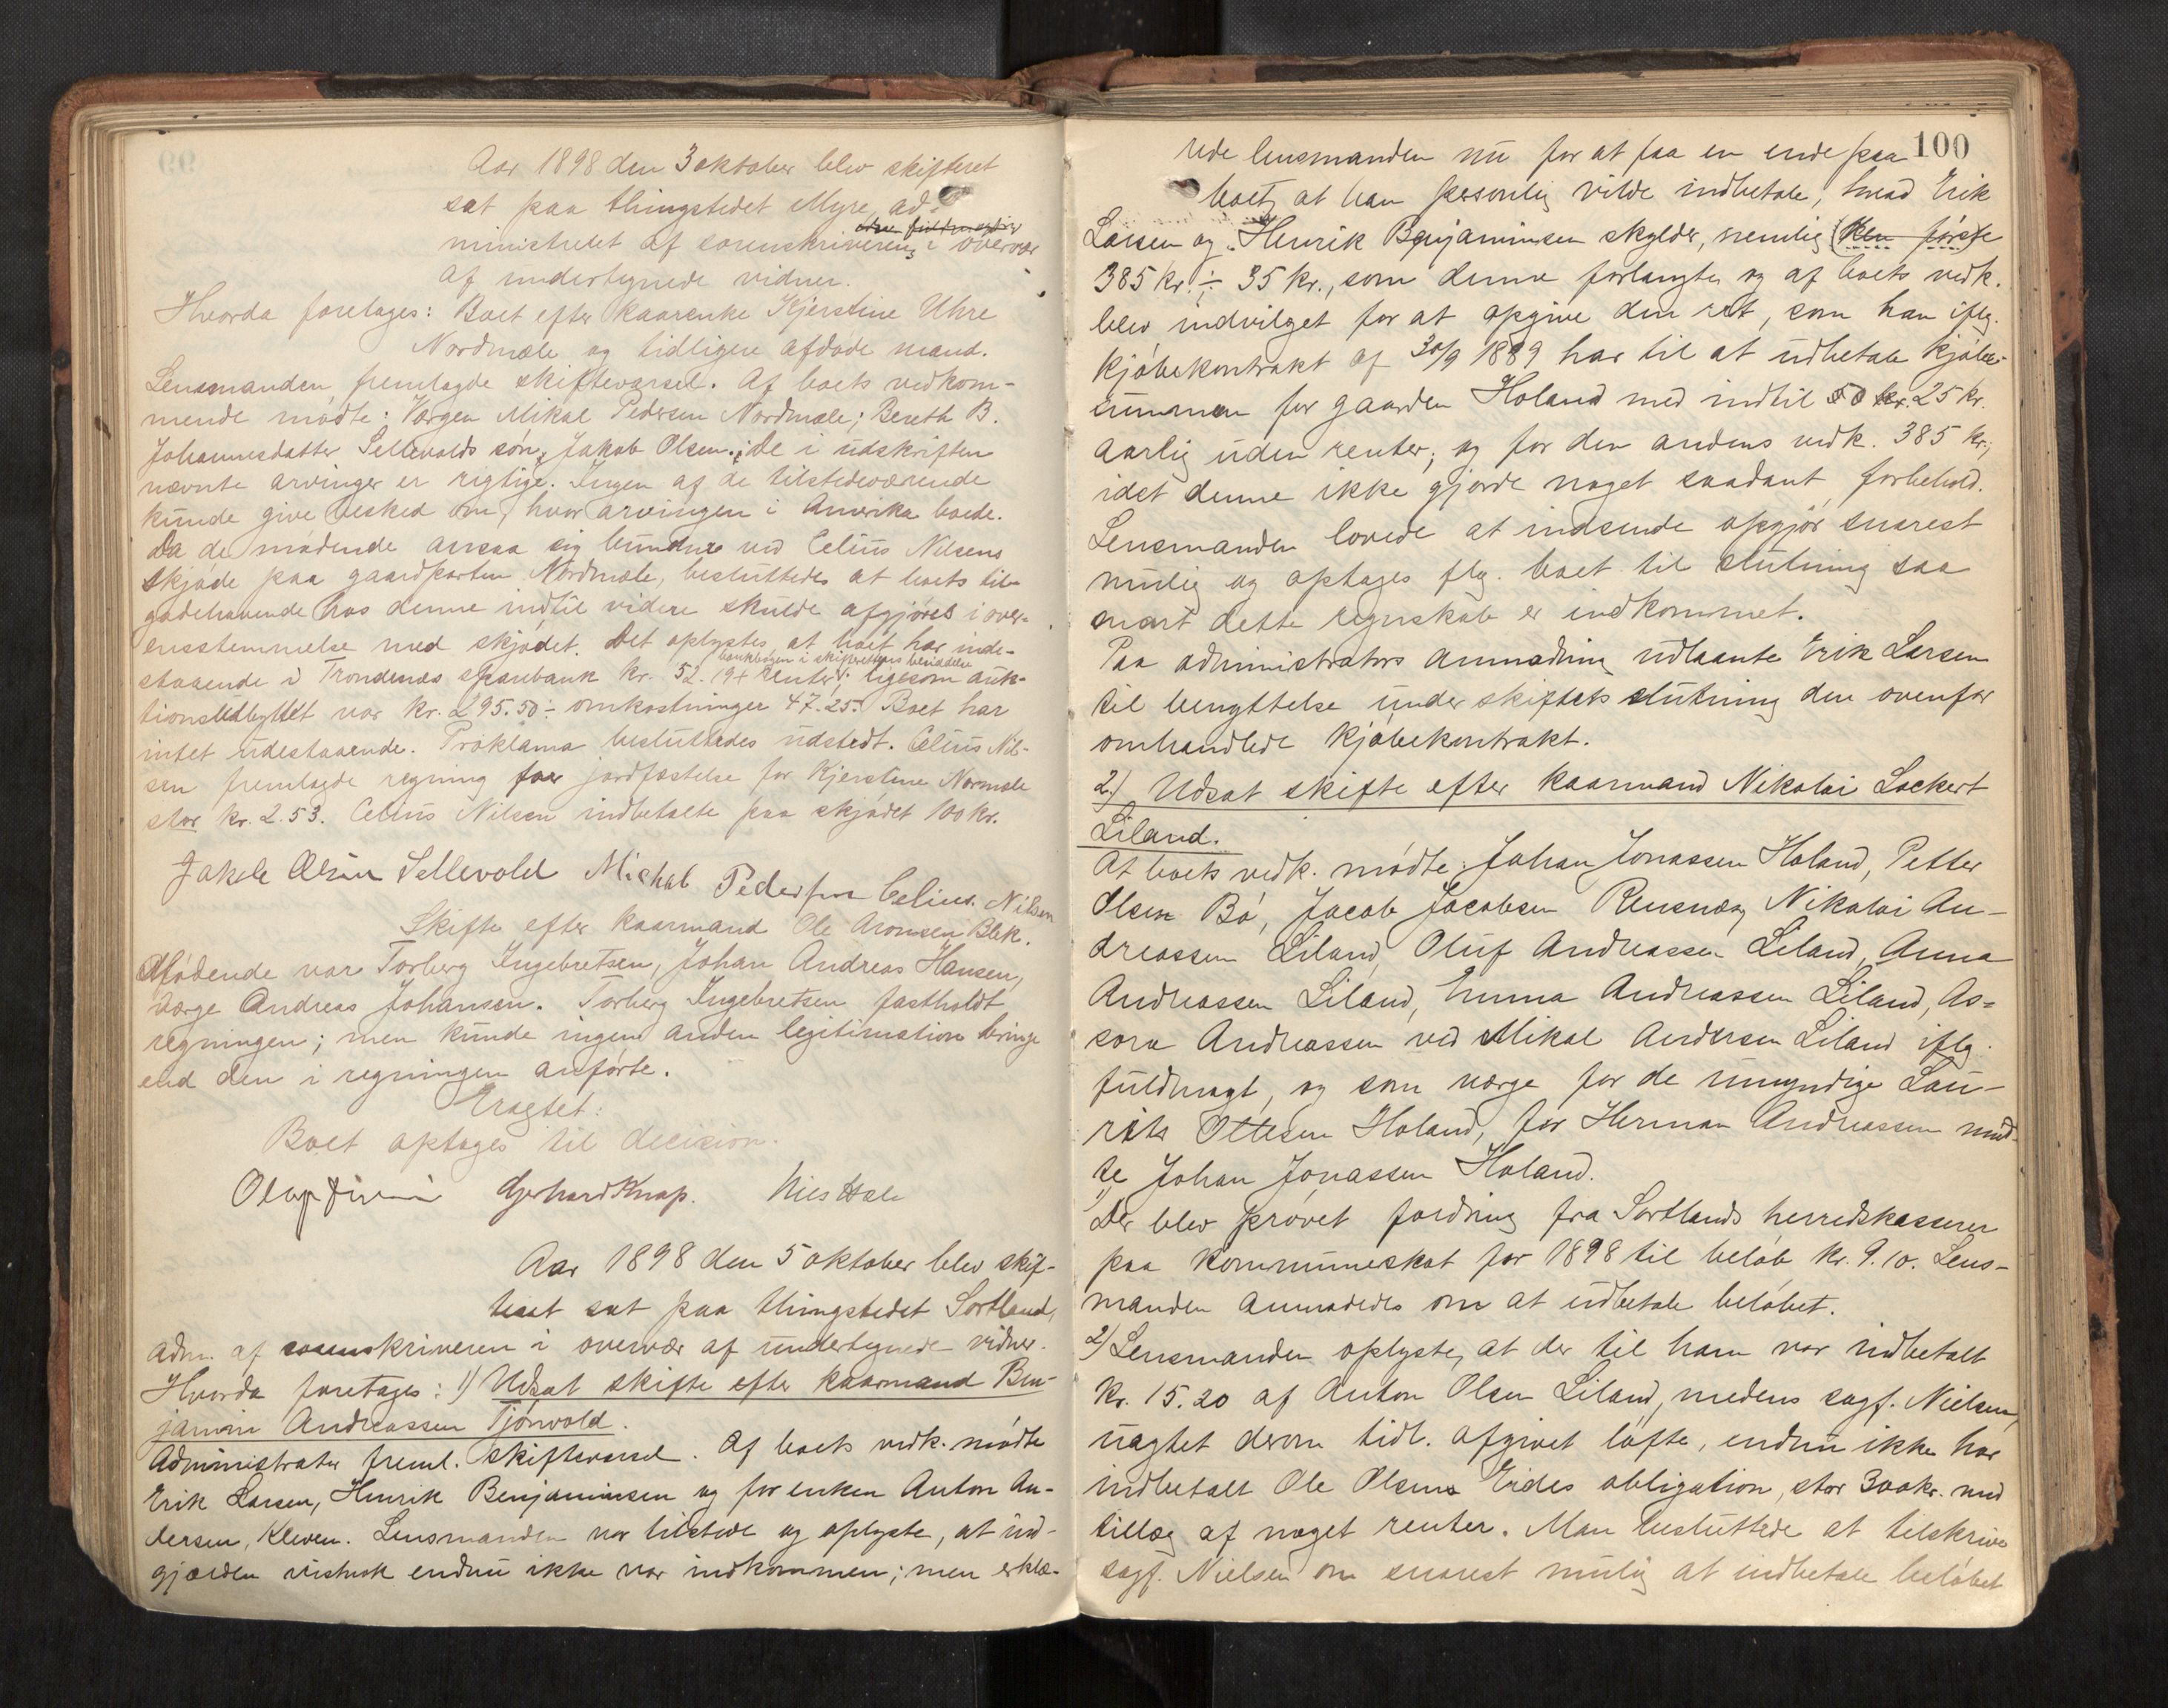 Aar 1898 den 3 oktober blev skifteret
sat paa thingstedet Myre, ad-
ministreret af sorenskriveren, i overvær
af undertegnede vidner.
Hvorda foretages: Boet efter kaarenke Kjerstine Uhre
Nordmæle og tidligere afdøde mand.
Lensmanden fremlagde skiftevarsel. Af boets vedkom-
mende mødte: Værgen Mikal Pedersen Nordmæle; Bereth B.
Johannesdatter Sellevolds søn, Jakob Olsen. De i udskriften
nævnte arvinger er rigtige. Ingen af de tilstedeværende
kunde give besked om, hvor arvingen i Amerika boede.
Da de mødende ansaa sig bundne ved Celius Nilsens
skjøde paa gaardparten Nordmæle, besluttedes at boets til-
godehavende hos denne indtil videre skulde afgjøres i over-
ensstemmelse med skjødet. Det oplystes at boet har inde-
bankbogen i skifterettens besiddelse
staaende i Trondenæs sparebank kr. 52.19 + renter; ligesom auk-
tionsudbyttet var kr. 295.50 ÷ omkostninger 47.25. Boet har
intet udestaaende. Proklama besluttedes udstedt. Celius Nil-
sen fremlagde regning for jordfæstelse for Kjerstine Normæle
stor kr. 2.53. Celius Nilsen indbetalte paa skjødet 100 kr.
Jakob Olsen Sellevold Michal Pedersen Celius Nilsen
Skifte efter kaarmand Ole Aronsen Blek.
Mødende var Torberg Ingebretsen, Johan Andreas Hansen,
værge Andreas Johansen. Torberg Ingebretsen fastholdt
regningen; men kunde ingen anden legitimation bringe
end den i regningen anførte.
Eragtet:
Boet optages til decision.
Gerhard Knap. Nils Hals
Aar 1898 den 5 oktober blev skif-
teret sat paa thingstedet Sortland,
adm. af sorenskriveren i overvær af undertegnede vidner.
Hvorda foretages: 1) Udsat skifte efter kaarmand Ben-
jamin Andreassen Tjønvold.
Administrator freml. skiftevarsel. Af boets vedk. mødte
Erik Larsen, Henrik Benjaminsen og for enken Anton An-
dersen, Kleven. Lensmanden var tilstede og oplyste, at ind-
gjælden vistnok endnu ikke var indkommen; men erklæ-
100
rede lensmanden nu for at faa en ende paa
boet, at han personlig vilde indbetale, hvad Erik
Larsen og Henrik Benjaminsen skylder, nemlig (den første)
385 kr. ÷ 35 kr., som denne forlangte og af boets vedk.
blev indvilget for at opgive den ret, som han iflg.
kjøbekontrakt af 30/9 1889 har til at udbetale kjøbe-
summen for gaarden Holand med indtil 50 kr. 25 kr.
aarlig uden renter; og for den andens vedk. 385 kr.,
idet denne ikke gjorde noget saadant forbehold.
Lensmanden lovede at indsende opgjør snarest
mulig og optages flg. boet til slutning saa
snart dette regnskab er indkommet.
Paa administrators anmodning udlaante Erik Larsen
til benyttelse under skiftets slutning den ovenfor
omhandlede kjøbekontrakt.
2.) Udsat skifte efter kaarmand Nikolai Lockert
Liland.
Af boets vedk. mødte: Johan Jonassen Holand, Petter
Olsen Bø, Jacob Jacobsen Rensnæs, Nikolai An-
dreassen Liland, Oluf Andreassen Liland, Anna
Andreassen Liland, Emma Andreassen Liland, As-
sora Andreassen ved Mikal Andersen Liland iflg.
fuldmagt, og som værge for de umyndige Lau-
rits Ottesen Holand, for Herman Andreassen mød-
te Johan Jonassen Holand.
Der blev prøvet fordring fra Sortlands herredskasserer
paa kommuneskat for 1898 til beløb kr. 9.10. Lens-
manden anmodedes om at udbetale beløbet.
2) Lensmanden oplyste, at der til ham var indbetalt
kr. 15.20 af Anton Olsen Liland, medens sagf. Nielsen,
uagtet derom tidl. afgivet løfte, endnu ikke har
indbetalt Ole Olsens Eides obligation, stor 300 kr. med
tillæg af noget renter. Man besluttede at tilskrive
sagf. Nielsen om snarest mulig at indbetale beløbet